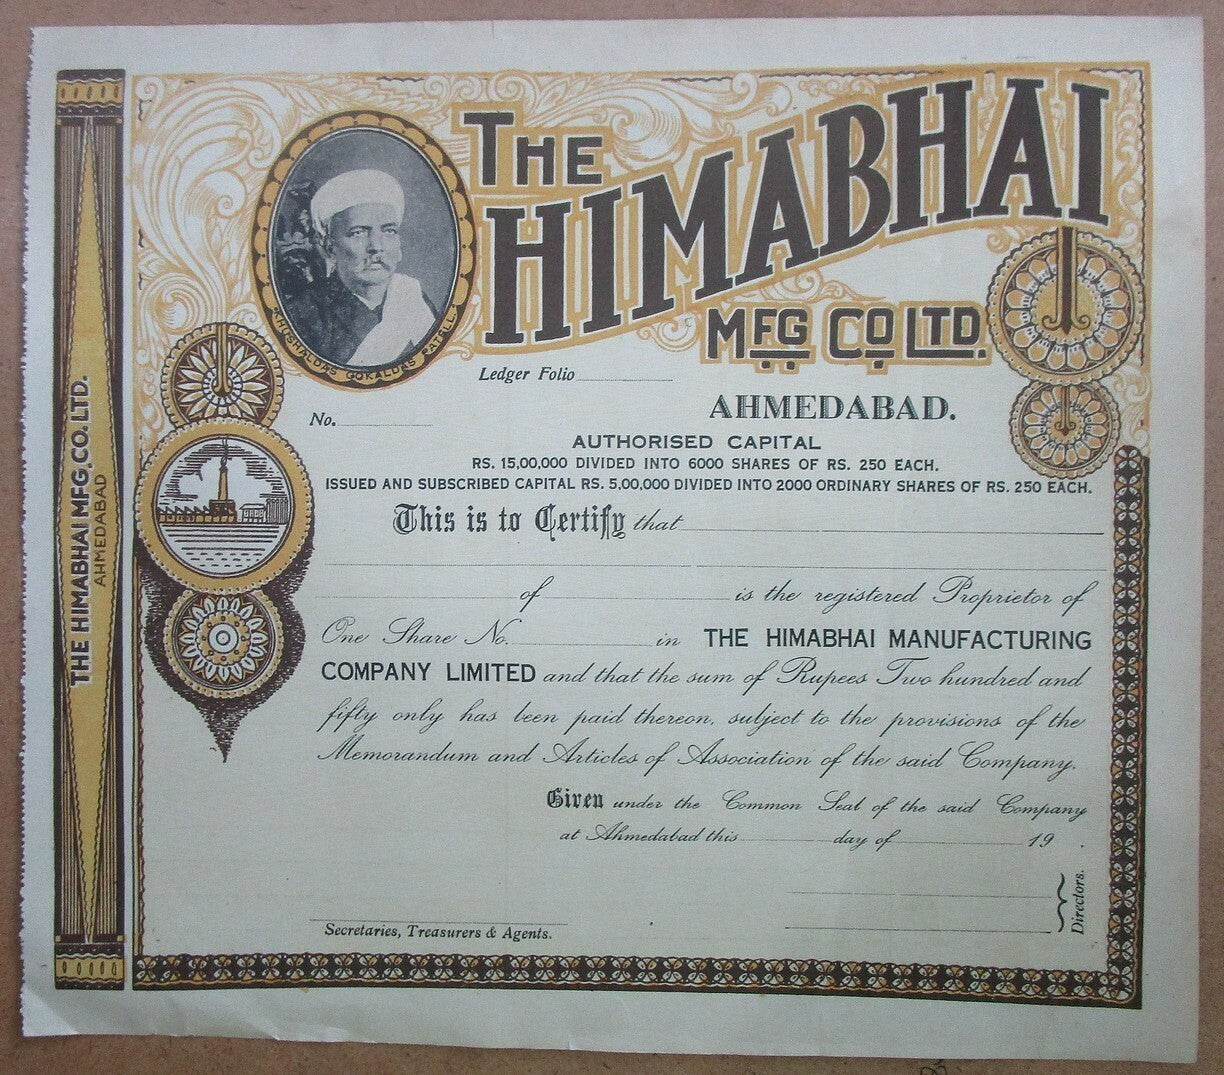 THE
HIMABHAI
MFG CO LTD.
KHUSHALDAS GOKALDAS PATELL
THE HIMABHAI MFG. CO. LTD.
AHMEDABAD
Ledger Folio
No.
AHMEDABAD.
AUTHORISED CAPITAL
RS. 15,00,000 DIVIDED INTO 6000 SHARES OF RS. 250 EACH.
ISSUED AND SUBSCRIBED CAPITAL RS. 5,00,000 DIVIDED INTO 2000 ORDINARY SHARES OF RS. 250 EACH.
This is to Certify that
of is the registered Proprietor of
One Share No. in THE HIMABHAI MANUFACTURING
COMPANY LIMITED and that the sum of Rupees Two hundred and
fifty only has been paid thereon, subject to the provisions of the
Memorandum and Articles of Association of the said Company.
Given under the Common Seal of the said Company
at Ahmedabad this day of 19 .
Directors.
Secretaries, Treasurers & Agents.